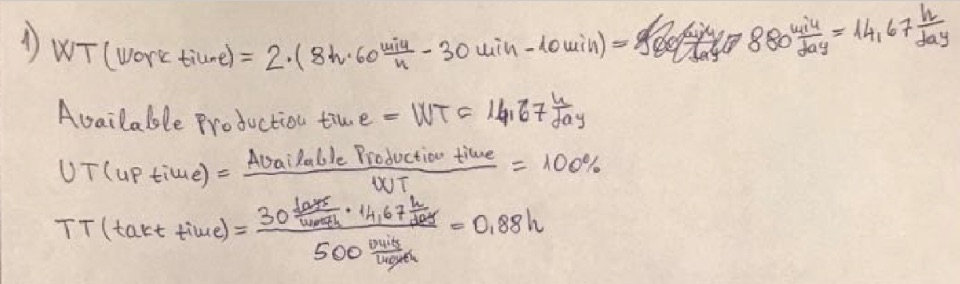 1) WT (work time) = 2·(8h·60 min/h - 30 min - 10 min) = 880 min/day = 14,67 h/day
Available Production time = WT = 14,67 h/day
UT (up time) = Available Production time / WT = 100%
TT (takt time) = 30 days/month · 14,67 h/day / 500 units/month = 0,88h